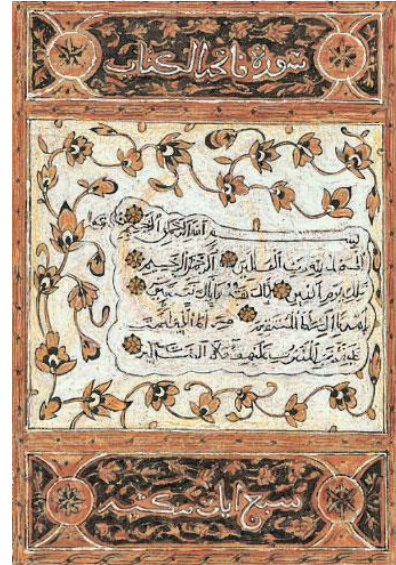 سورة فاتحة الكتاب
بسم الله الرحمن الرحيم
الحمد لله رب العالمين الرحمن الرحيم
ملك يوم الدين إياك نعبد وإياك نستعين
إهدنا الصراط المستقيم صراط الذين أنعمت
عليهم غير المغضوب عليهم ولا الضالين
سبع آيات مكية